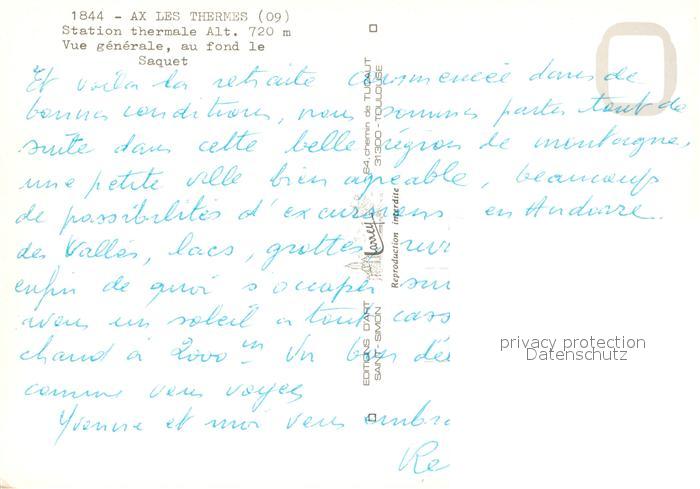 1844 - AX LES THERMES (09)
Station thermale Alt. 720 m
Vue générale, au fond le
Saquet
Et voila la retraite commencée dans de
bonnes conditions, nous sommes partis tout de
suite dans cette belle région de montagnes,
une petite ville bien agréable, beaucoup
de possibilités d'excursions en Andorre.
des Vallées, lacs, grottes,
enfin de quoi s'occuper
avons un soleil a tout cass
chaud à 2000 m Un bon dé
comme vous voyez
Yvonne et moi vous embra
Re
84, chemin de TUBAUT
31300 - TOULOUSE
Larrey
Reproduction interdite
EDITIONS D'ART
SAINT-SIMON
privacy protection
Datenschutz